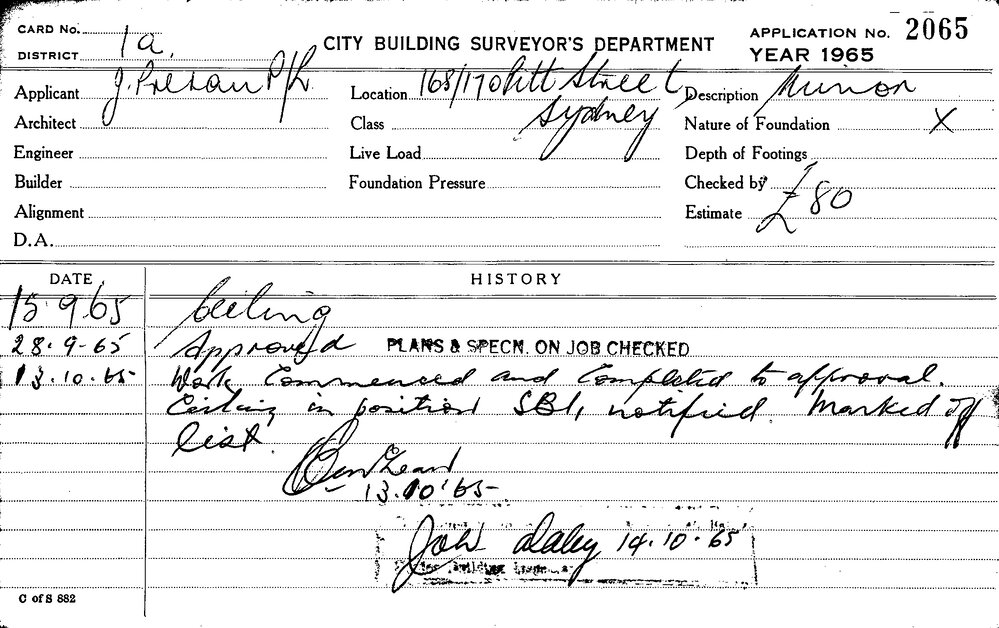 CARD No.
DISTRICT 1a.
CITY BUILDING SURVEYOR'S DEPARTMENT
APPLICATION No. 2065
YEAR 1965
Applicant J. P/L. Location 168/170 Pitt Street Description Minor
Sydney
Architect Class Nature of Foundation X
Engineer Live Load Depth of Footings
Builder Foundation Pressure Checked by
Alignment Estimate £80
D.A.
DATE HISTORY
15.9.65 Ceiling
28.9-65 Approved PLANS & SPECN. ON JOB CHECKED
13.10.65- Work Commenced and Completed to approval.
Ceiling in position SBI, notified. Marked off
list.
13.10.65-
John Daley 14.10.65
C of S 882